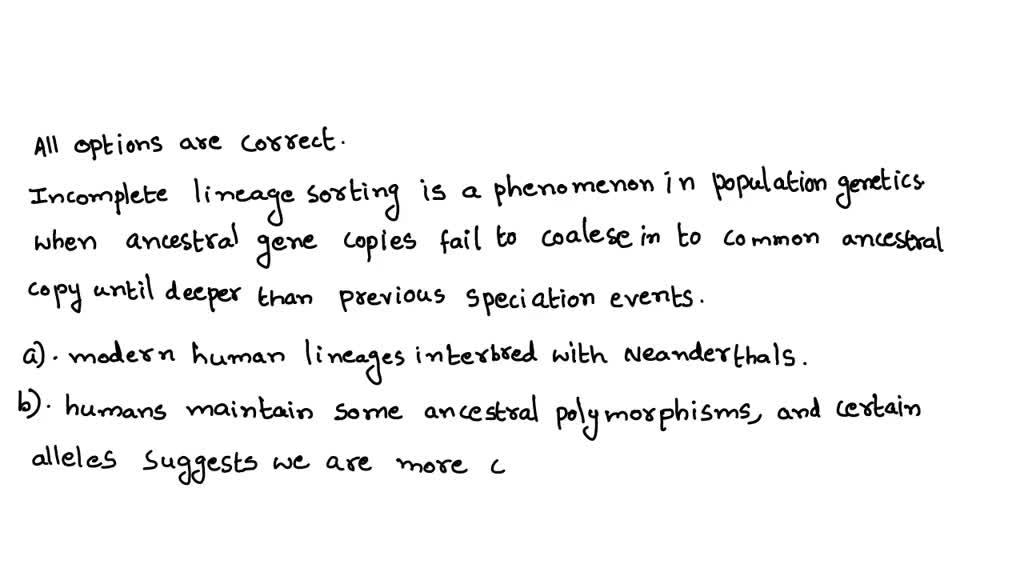 All options are correct.
Incomplete lineage sorting is a phenomenon in population genetics
when ancestral gene copies fail to coalese in to common ancestral
copy until deeper than previous speciation events.
a). modern human lineages interbred with Neanderthals.
b). humans maintain some ancestral polymorphisms, and certain
alleles suggests we are more c